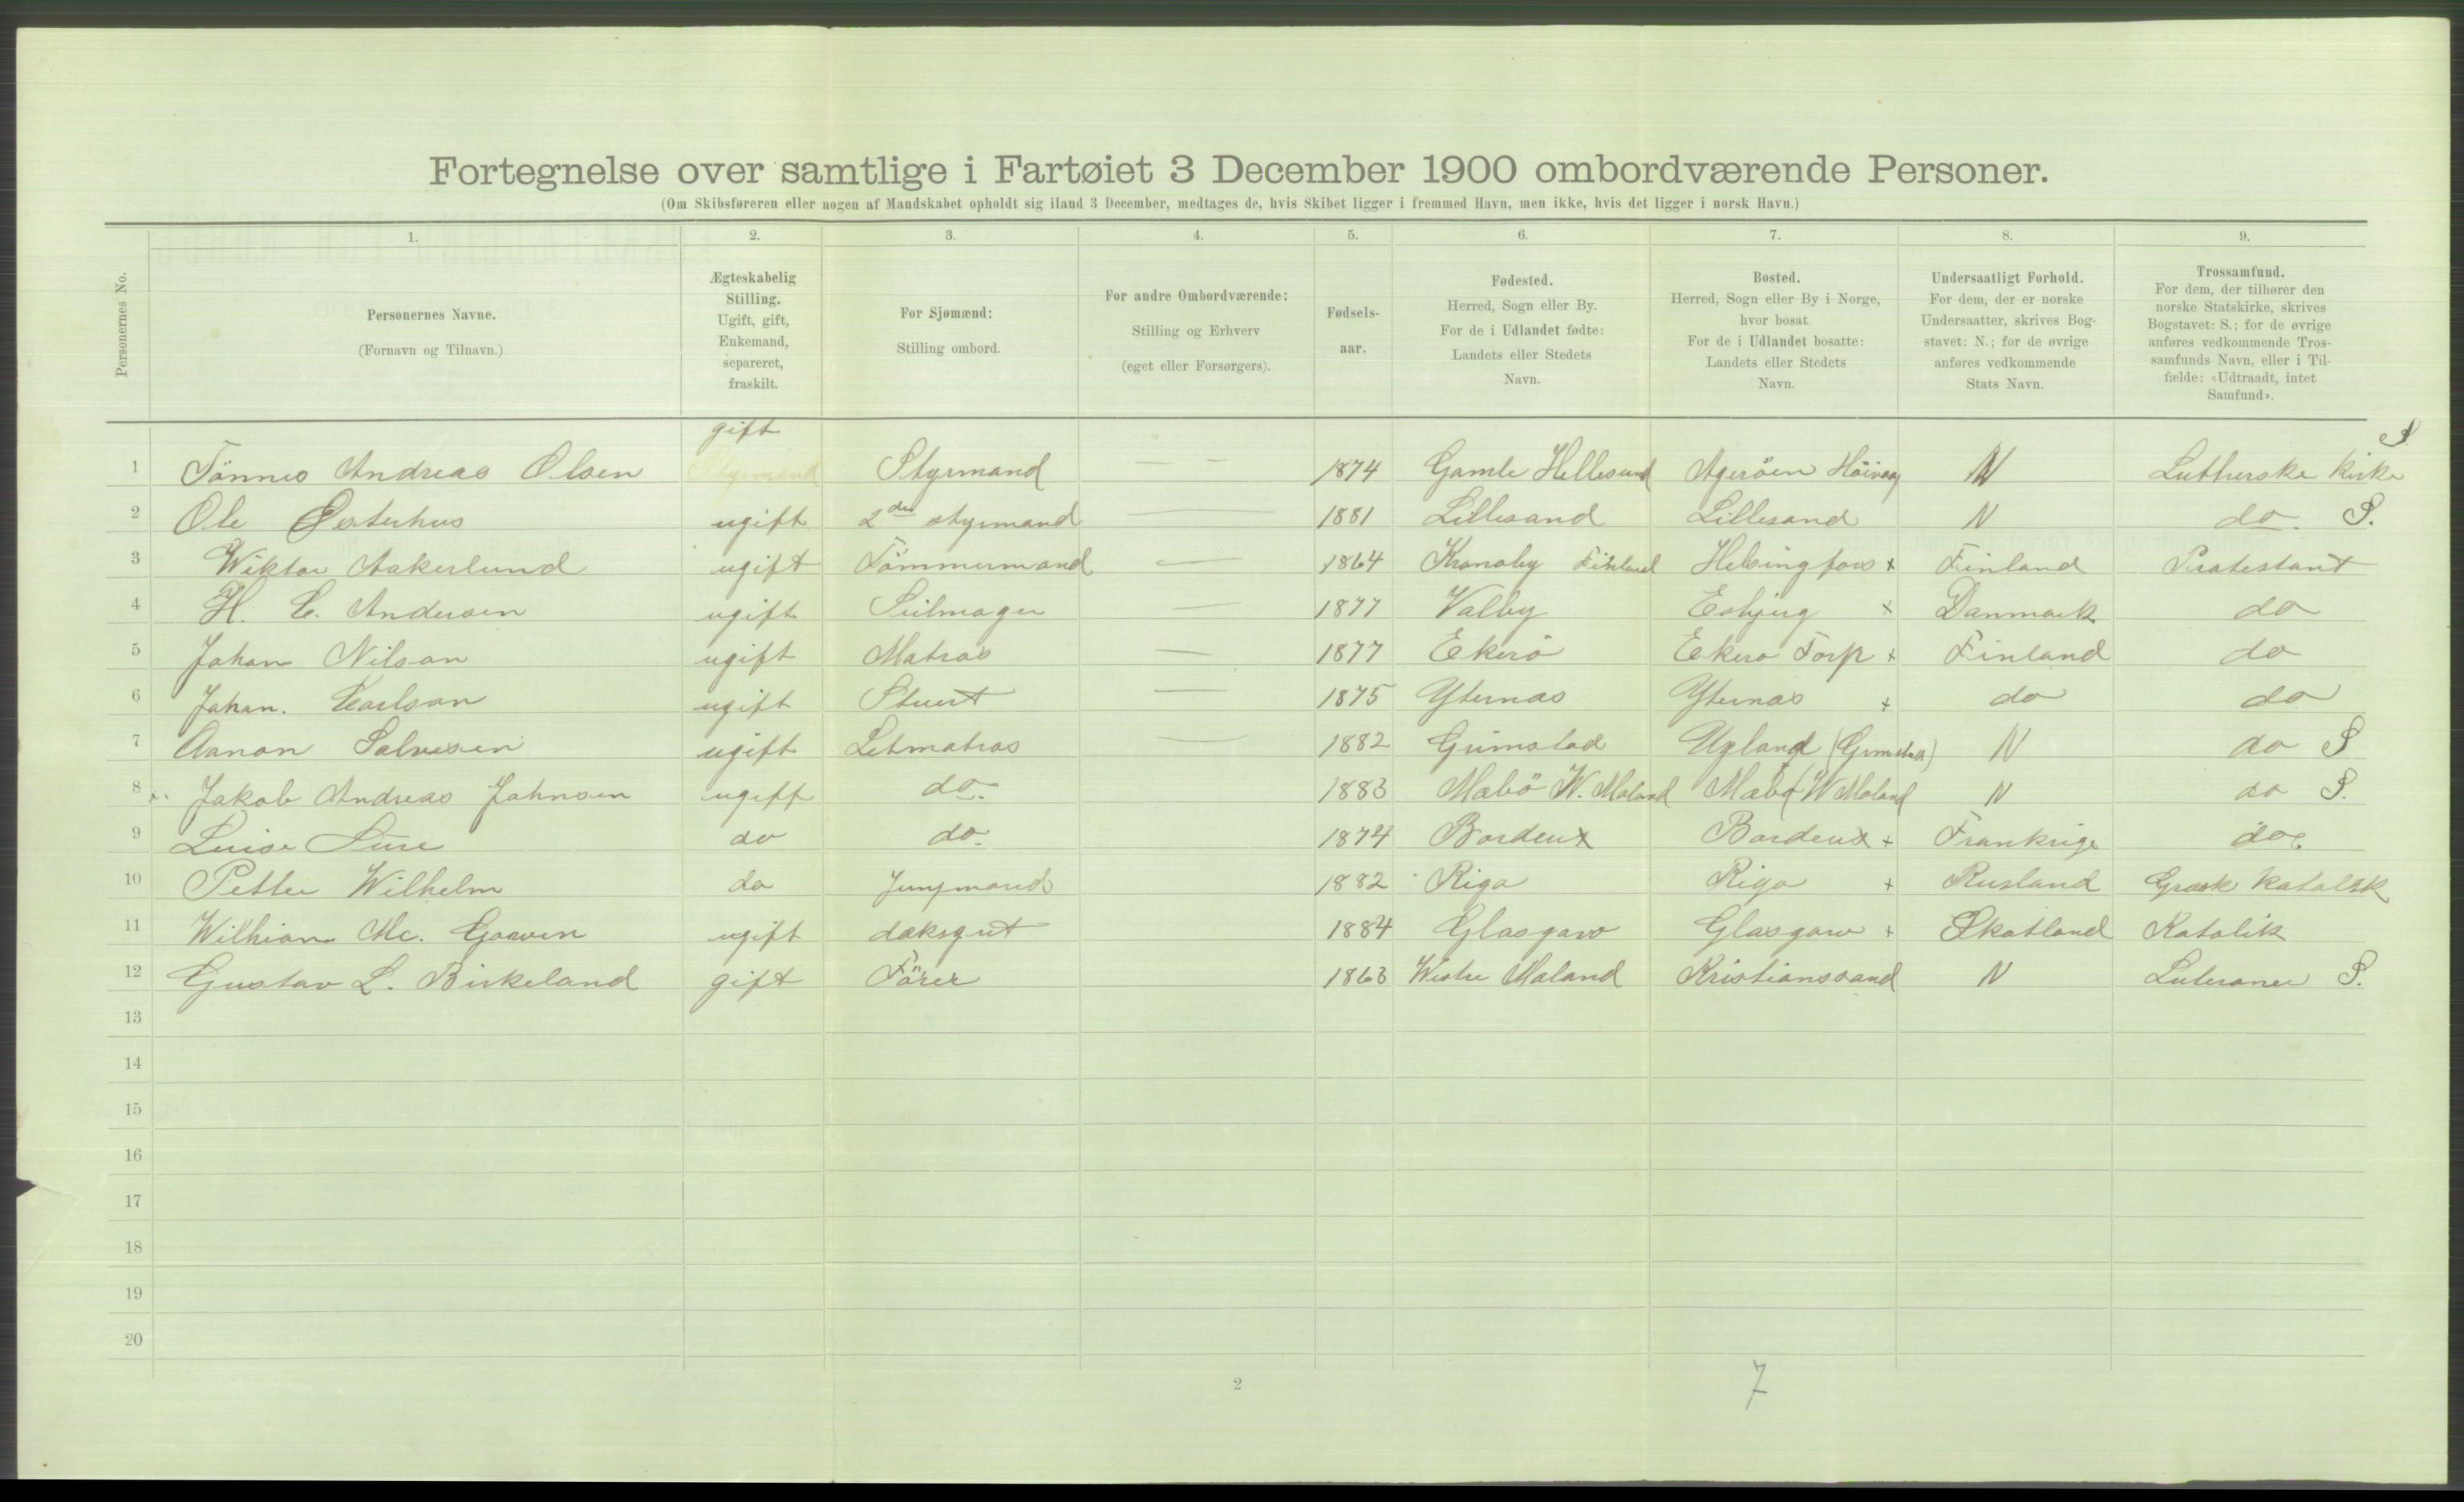 Fortegnelse over samtlige i Fartøiet 3 December 1900 ombordværende Personer.
(Om Skibsføreren eller nogen af Mandskabet opholdt sig iland 3 December, medtages de, hvis Skibet ligger i fremmed Havn, men ikke, hvis det ligger i norsk Havn.)
Personernes No.
1.
Personernes Navne.
(Fornavn og Tilnavn.)
2.
Ægteskabelig
Stilling.
Ugift, gift,
Enkemand,
separeret,
fraskilt.
3.
For Sjømænd:
Stilling ombord.
4.
For andre Ombordværende:
Stilling og Erhverv
(eget eller Forsørgers).
5.
Fødsels-
aar.
6.
Fødested.
Herred, Sogn eller By.
For de i Udlandet fødte:
Landets eller Stedets
Navn.
7.
Bosted.
Herred, Sogn eller By i Norge,
hvor bosat.
For de i Udlandet bosatte:
Landets eller Stedets
Navn.
8.
Undersaatligt Forhold.
For dem, der er norske
Undersaatter, skrives Bog-
stavet: N.; for de øvrige
anføres vedkommende
Stats Navn.
9.
Trossamfund.
For dem, der tilhører den
norske Statskirke, skrives
Bogstavet: S.; for de øvrige
anføres vedkommende Tros-
samfunds Navn, eller i Til-
fælde: «Udtraadt, intet
Samfund».
1 Tönnes Andreas Olsen gift Styrmand Styrmand — — 1874 Gamle Hellesund Ageröen Höivaag N Lutherske Kirke S.
2 Ole Østerhus ugift 2den styrmand — 1881 Lillesand Lillesand N do. S.
3 Wiktor Aakerlund ugift Tömmermand — 1864 Kronoby Finland Helsingfors + Finland Protestant
4 H. C. Andersen ugift Seilmager — 1877 Valby Esbjerg + Danmark do
5 Johan Nilson ugift Matros — 1877 Ekerö Ekerö Torp + Finland do
6 Johan. Karlson ugift Stuert — 1875 Yternas Yternas + do do
7 Aanon Salvesen ugift Letmatros — 1882 Grimstad Ugland (Grimstad) N do S
8 Jakob Andreas Johnsen ugift do. 1883 Mabö W. Moland Mabö W Moland N do S.
9 Luise do do. 1874 Bordeux Bordeux + Frankrige do
10 Petter Wilhelm do Jungmand 1882 Riga Riga + Rusland Græsk Katolsk
11 Wilhiam Mc. Gowen ugift daksgut 1884 Glasgow Glasgow + Skotland Katolik
12 Gustav L. Birkeland gift Förer 1863 Westre Moland Kristianssand N Luteraner S.
13
14
15
16
17
18
19
20
2
7